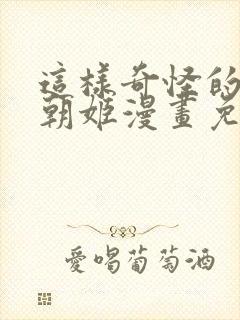 這樣奇怪的
朝姬漫畫免
愛喝葡萄酒